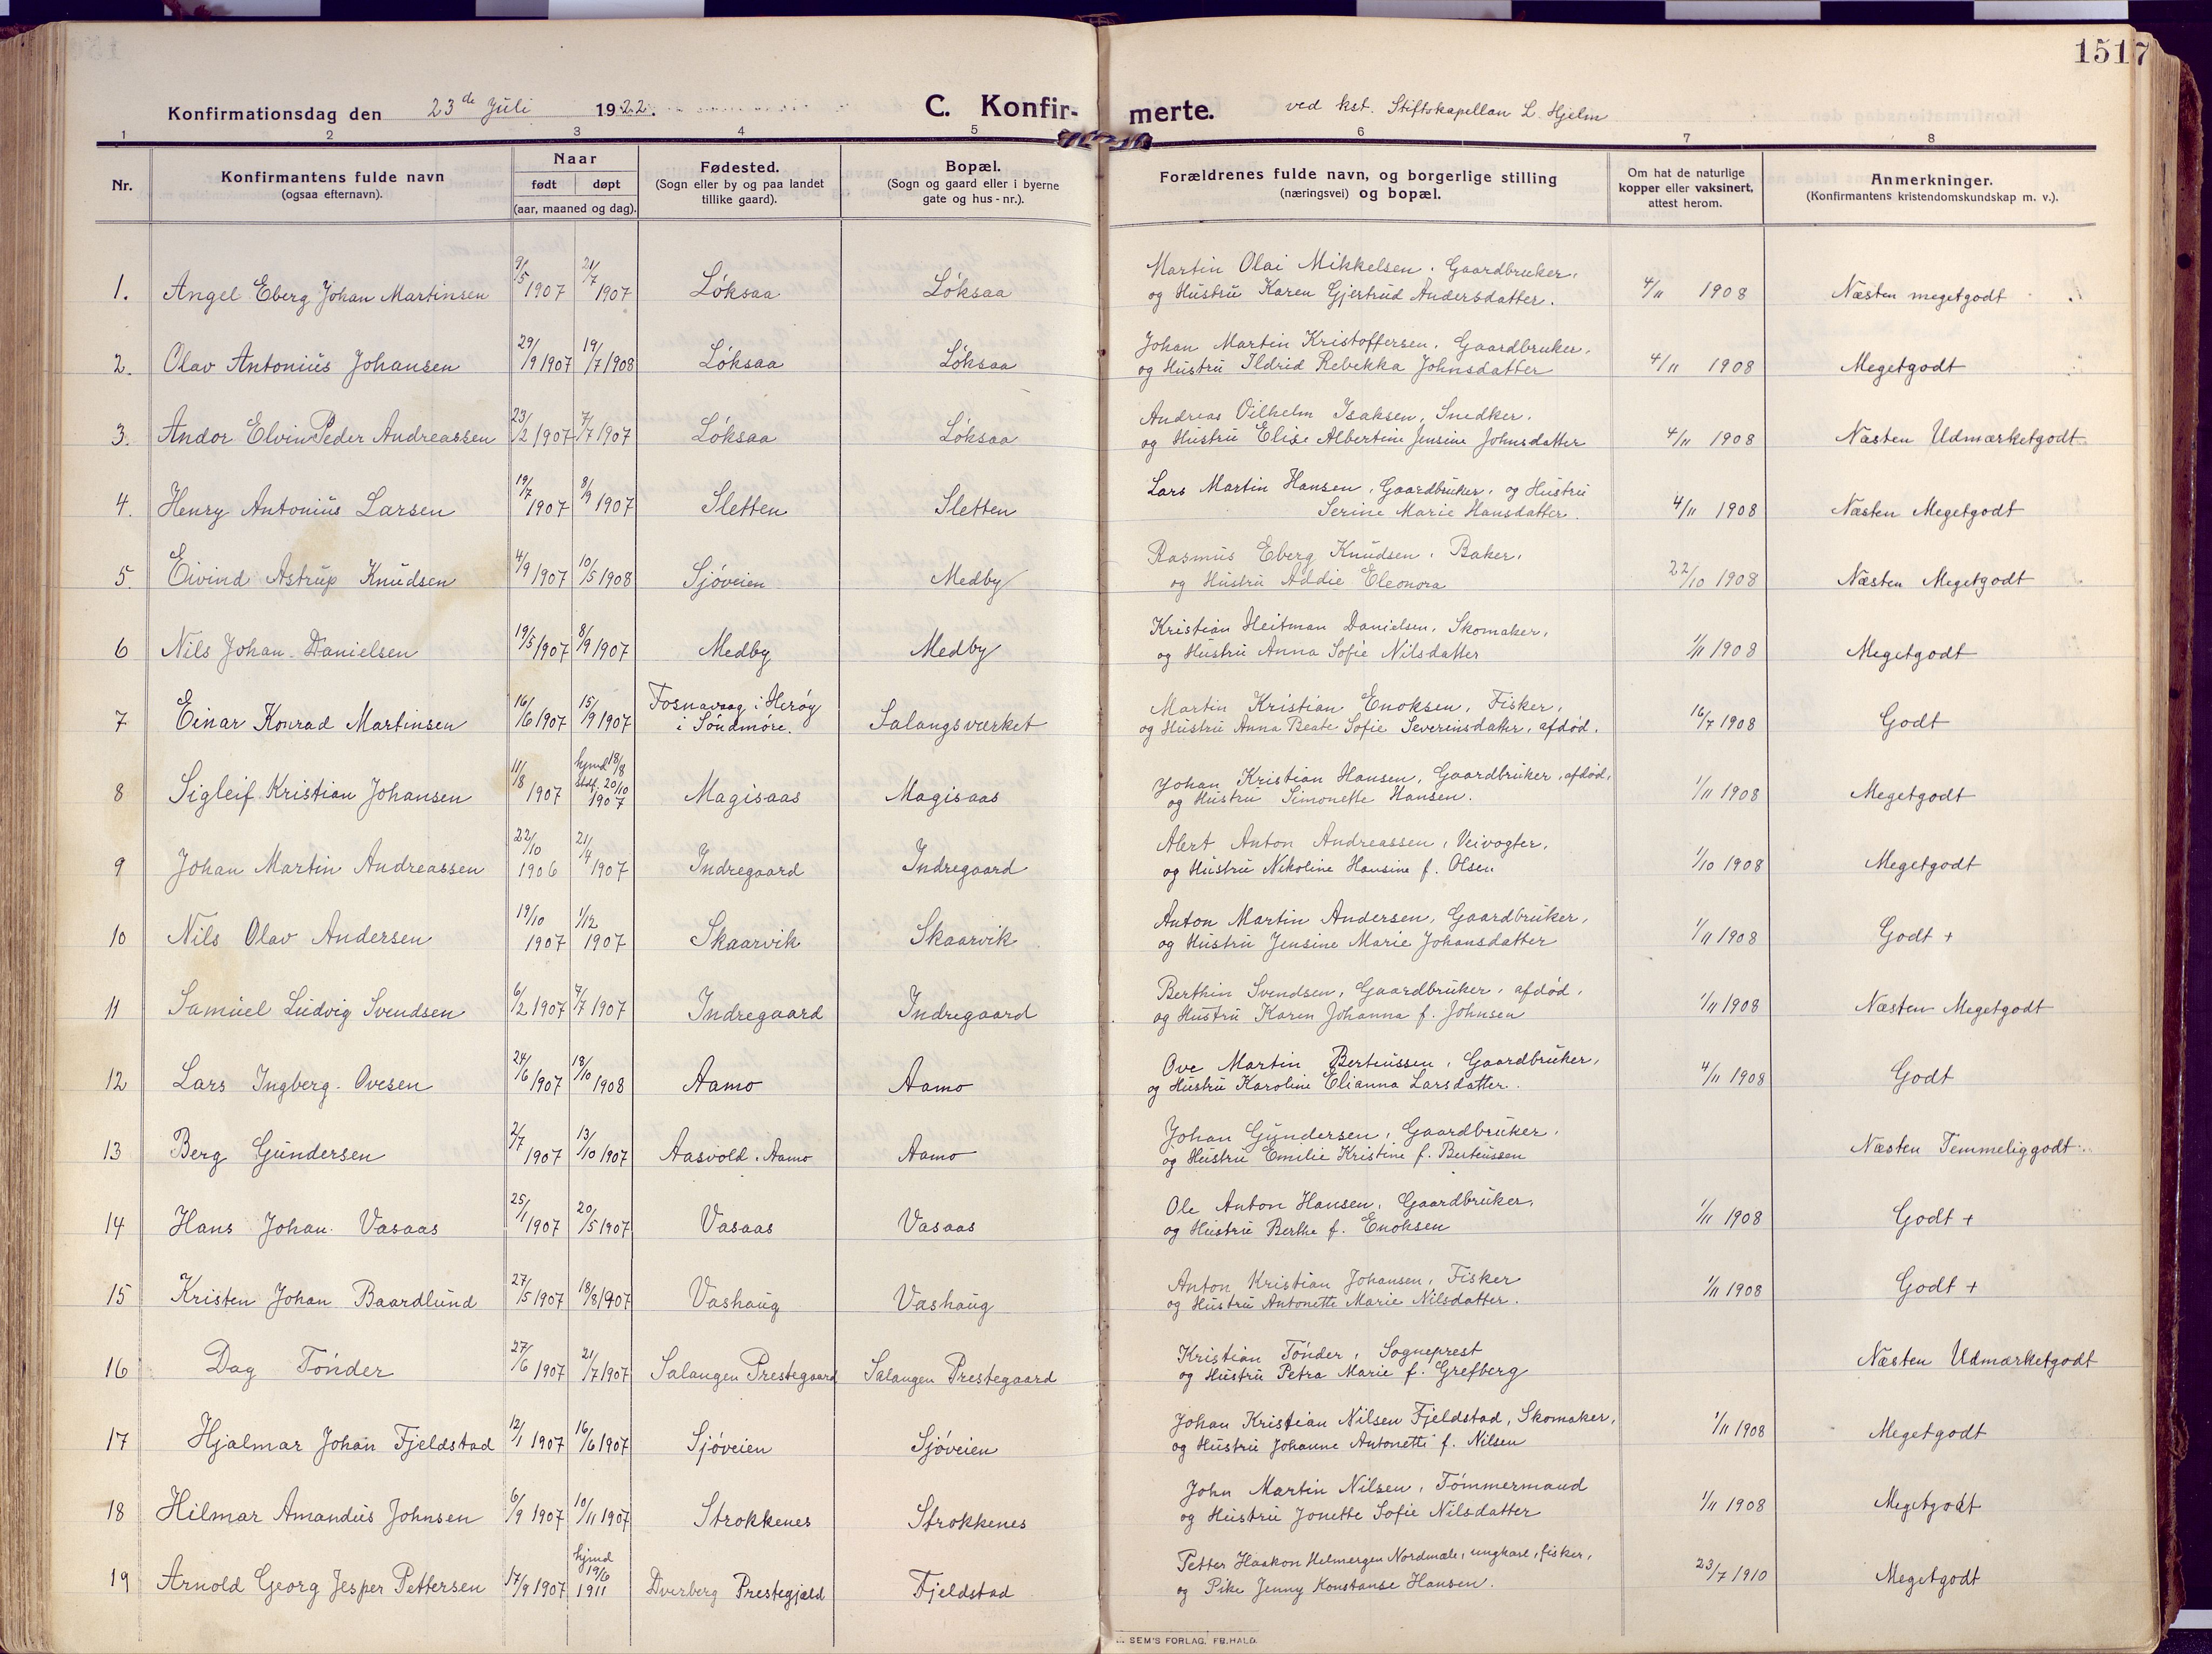 1517
Konfirmationsdag den 23de Juli 1922. C. Konfirmerte. ved kst. Stiftskapellan L. Hjelm
1 2 3 4 5 6 7 8
Nr. Konfirmantens fulde navn (ogsaa efternavn). Naar født døpt (aar, maaned og dag). Fødested. (Sogn eller by og paa landet tillike gaard). Bopæl. (Sogn og gaard eller i byerne gate og hus-nr.). Forældrenes fulde navn, og borgerlige stilling (næringsvei) og bopæl. Om hat de naturlige kopper eller vaksinert, attest herom. Anmerkninger. (Konfirmantens kristendomskundskap m. v.).
1. Angel Eberg Johan Martinsen 9/5 1907 21/7 1907 Løksaa Løksaa Martin Olai Mikkelsen, Gaardbruker, 4/11 1908 Næsten megetgodt
og Hustru Karen Gjertrud Andersdatter.
2. Olav Antonius Johansen 29/9 1907 19/7 1908 Løksaa Løksaa Johan Martin Kristoffersen, Gaardbruker, 4/11 1908 Megetgodt
og Hustru Ildrid Rebekka Johnsdatter
3. Andor Elvin Peder Andreassen 23/2 1907 7/7 1907 Løksaa Løksaa Andreas Vilhelm Isaksen, Snedker. 4/11 1908 Næsten Udmærketgodt
og Hustru Elise Albertine Jensine Johnsdatter
4. Henry Antonius Larsen 19/7 1907 8/9 1907 Sletten Sletten Lars Martin Hansen, Gaardbruker, og Hustru 4/11 1908 Næsten Megetgodt
Serine Marie Hansdatter.
5. Eivind Astrup Knudsen 4/9 1907 10/5 1908 Sjøveien Medby Rasmus Eberg Knudsen, Baker, 22/10 1908 Næsten Megetgodt
og Hustru Addie Eleonora
6 Nils Johan Danielsen 19/5 1907 8/9 1907 Medby Medby Kristian Heitman Danielsen, Skomaker, 1/11 1908 Megetgodt
og Hustru Anna Sofie Nilsdatter
7 Einar Konrad Martinsen 16/6 1907 15/9 1907 Fosnavaag i Herøy i Søndmøre. Salangsværket Martin Kristian Enoksen, Fisker, 16/7 1908 Godt
og Hustru Anna Beate Sofie Severinsdatter, afdød.
8 Sigleif Kristian Johansen 11/18 1907 hjmd 18/8 stsf. 20/10 1907 Magisaas Magisaas Johan Kristian Hansen, Gaardbruker, afdød, 1/11 1908 Megetgodt
og Hustru Simonette Hansen.
9 Johan Martin Andreassen 22/10 1906 21/4 1907 Indregaard Indregaard Albert Anton Andreassen, Veivogter, 1/10 1908 Megetgodt
og Hustru Nikoline Hansine f. Olsen
10 Nils Olav Andersen 19/10 1907 1/12 1907 Skaarvik Skaarvik Anton Martin Andersen, Gaardbruker, 1/11 1908 Godt +
og Hustru Jensine Marie Johansdatter
11 Samuel Ludvig Svendsen 6/2 1907 7/7 1907 Indregaard Indregaard Berthin Svendsen, Gaardbruker, afdød, 1/11 1908 Næsten Megetgodt
og Hustru Karen Johanna f. Johnsen
12 Lars Ingberg Ovesen 24/6 1907 18/10 1908 Aamo Aamo Ove Martin Berteussen, Gaardbruker, 4/11 1908 Godt
og Hustru Karoline Elianna Larsdatter.
13 Berg Gundersen 2/7 1907 13/10 1907 Aasvold, Aamo Aamo Johan Gundersen, Gaardbruker, Næsten Temmeliggodt
og Hustru Emilie Kristine f. Berteussen
14 Hans Johan Vasaas 25/1 1907 20/5 1907 Vasaas Vasaas Ole Anton Hansen, Gaardbruker, 1/11 1908 Godt +
og Hustru Berthe f. Enoksen
15 Kristen Johan Baardlund 27/5 1907 18/8 1907 Vashaug Vashaug Anton Kristian Johansen, Fisker 1/11 1908 Godt +
og Hustru Antonette Marie Nilsdatter.
16 Dag Tønder 27/6 1907 21/7 1907 Salangen Prestegaard Salangen Prestegaard Kristian Tønder, Sogneprest Næsten Udmærketgodt
og Hustru Petra Marie f. Grefberg
17 Hjalmar Johan Fjeldstad 12/1 1907 16/6 1907 Sjøveien Sjøveien Johan Kristian Nilsen Fjeldstad, Skomaker, 1/11 1908 Megetgodt
og Hustru Johanne Antonette f. Nilsen
18 Hilmar Amandus Johnsen 6/9 1907 10/11 1907 Strokkenes Strokkenes John Martin Nilsen, Tømmermand 1/11 1908 Megetgodt
og Hustru Jonette Sofie Nilsdatter
19 Arnold Georg Jesper Pettersen 17/9 1907 hjmd 19/6 1911 Dverberg Prestegjæld Fjeldstad Petter Haakon Helmergen Nordmæle, ungkarl, fisker, 23/7 1910 Megetgodt
og Pike Jenny Konstanse Hansen.
SEM'S FORLAG, FR.HALD.